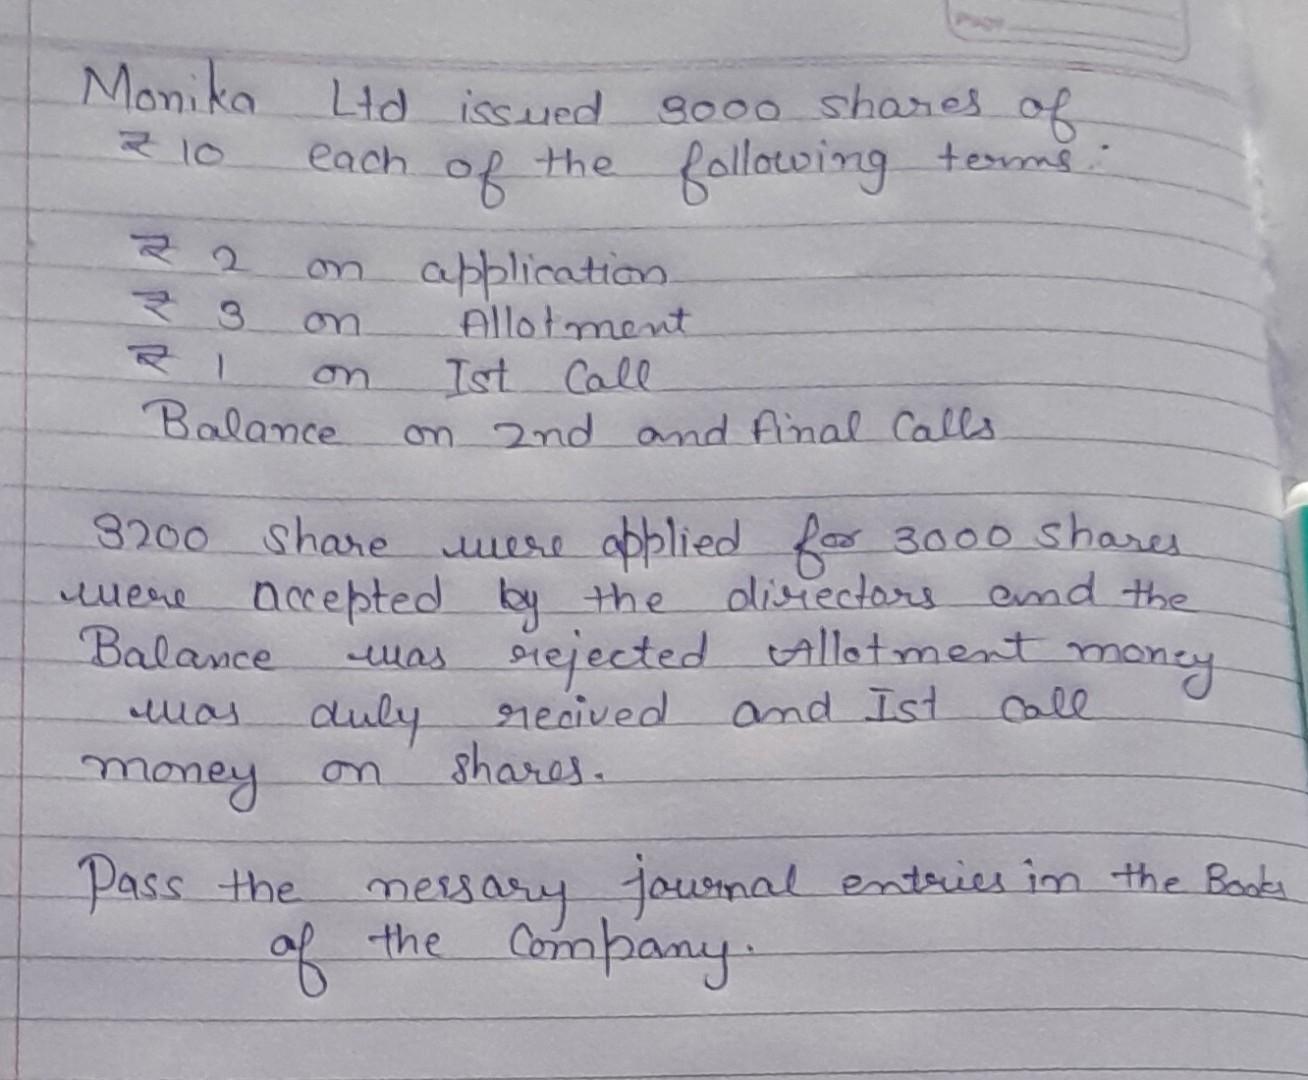 Monika Ltd issued 3000 shares of
₹ 10 each of the following terms:
₹ 2 on application
₹ 3 on Allotment
₹ 1 on Ist Call
Balance on 2nd and final Calls
3200 share were applied for 3000 shares
were accepted by the directors and the
Balance was rejected Allotment money
was duly recived and Ist call
money on shares.
Pass the nessary journal entries in the Books
of the Company.